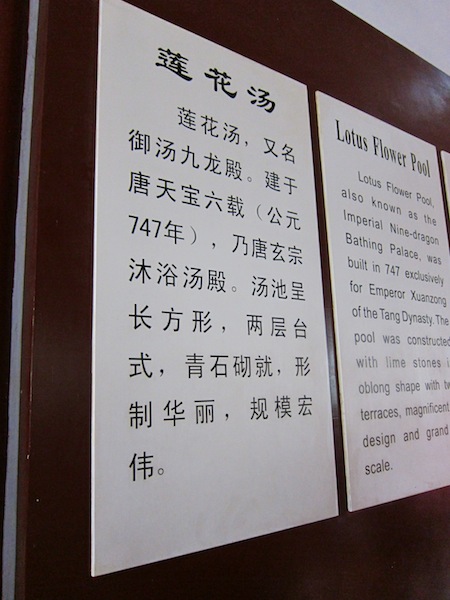 莲花汤
莲花汤，又名
御汤九龙殿。建于
唐天宝六载（公元
747年），乃唐玄宗
沐浴汤殿。汤池呈
长方形，两层台
式，青石砌就，形
制华丽，规模宏
伟。
Lotus Flower Pool
Lotus Flower Pool,
also known as the
Imperial Nine-dragon
Bathing Palace, was
built in 747 exclusively
for Emperor Xuanzong
of the Tang Dynasty. The
pool was constructed
with lime stones
oblong shape with
terraces, magnificent
design and grand
scale.